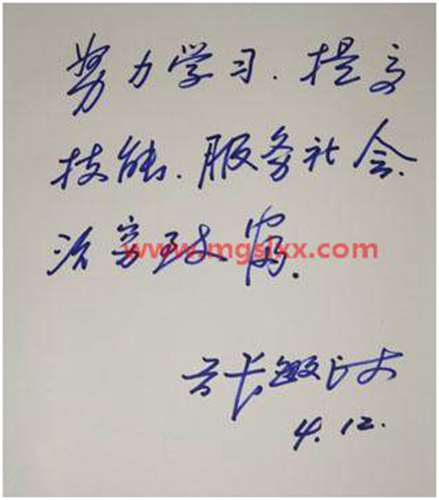 努力学习.提高
技能.服务社会.
治穷致富.
www.mgslxx.com
4.12.